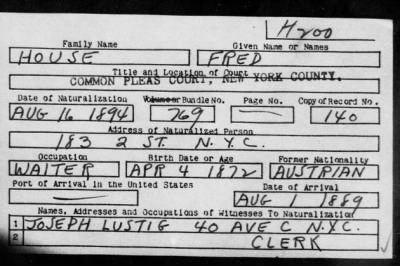 H200
Family Name Given Name or Names
HOUSE FRED
Title and Location of Court
COMMON PLEAS COURT, NEW YORK COUNTY.
Date of Naturalization Volume or Bundle No. Page No. Copy of Record No.
AUG 16 1894 769 — 140
Address of Naturalized Person
183 2 ST. N.Y.C.
Occupation Birth Date or Age Former Nationality
WAITER APR 4 1872 AUSTRIAN
Port of Arrival in the United States Date of Arrival
— AUG 1 1889
Names, Addresses and Occupations of Witnesses To Naturalization
1 JOSEPH LUSTIG 40 AVE C N.Y.C.
2 CLERK